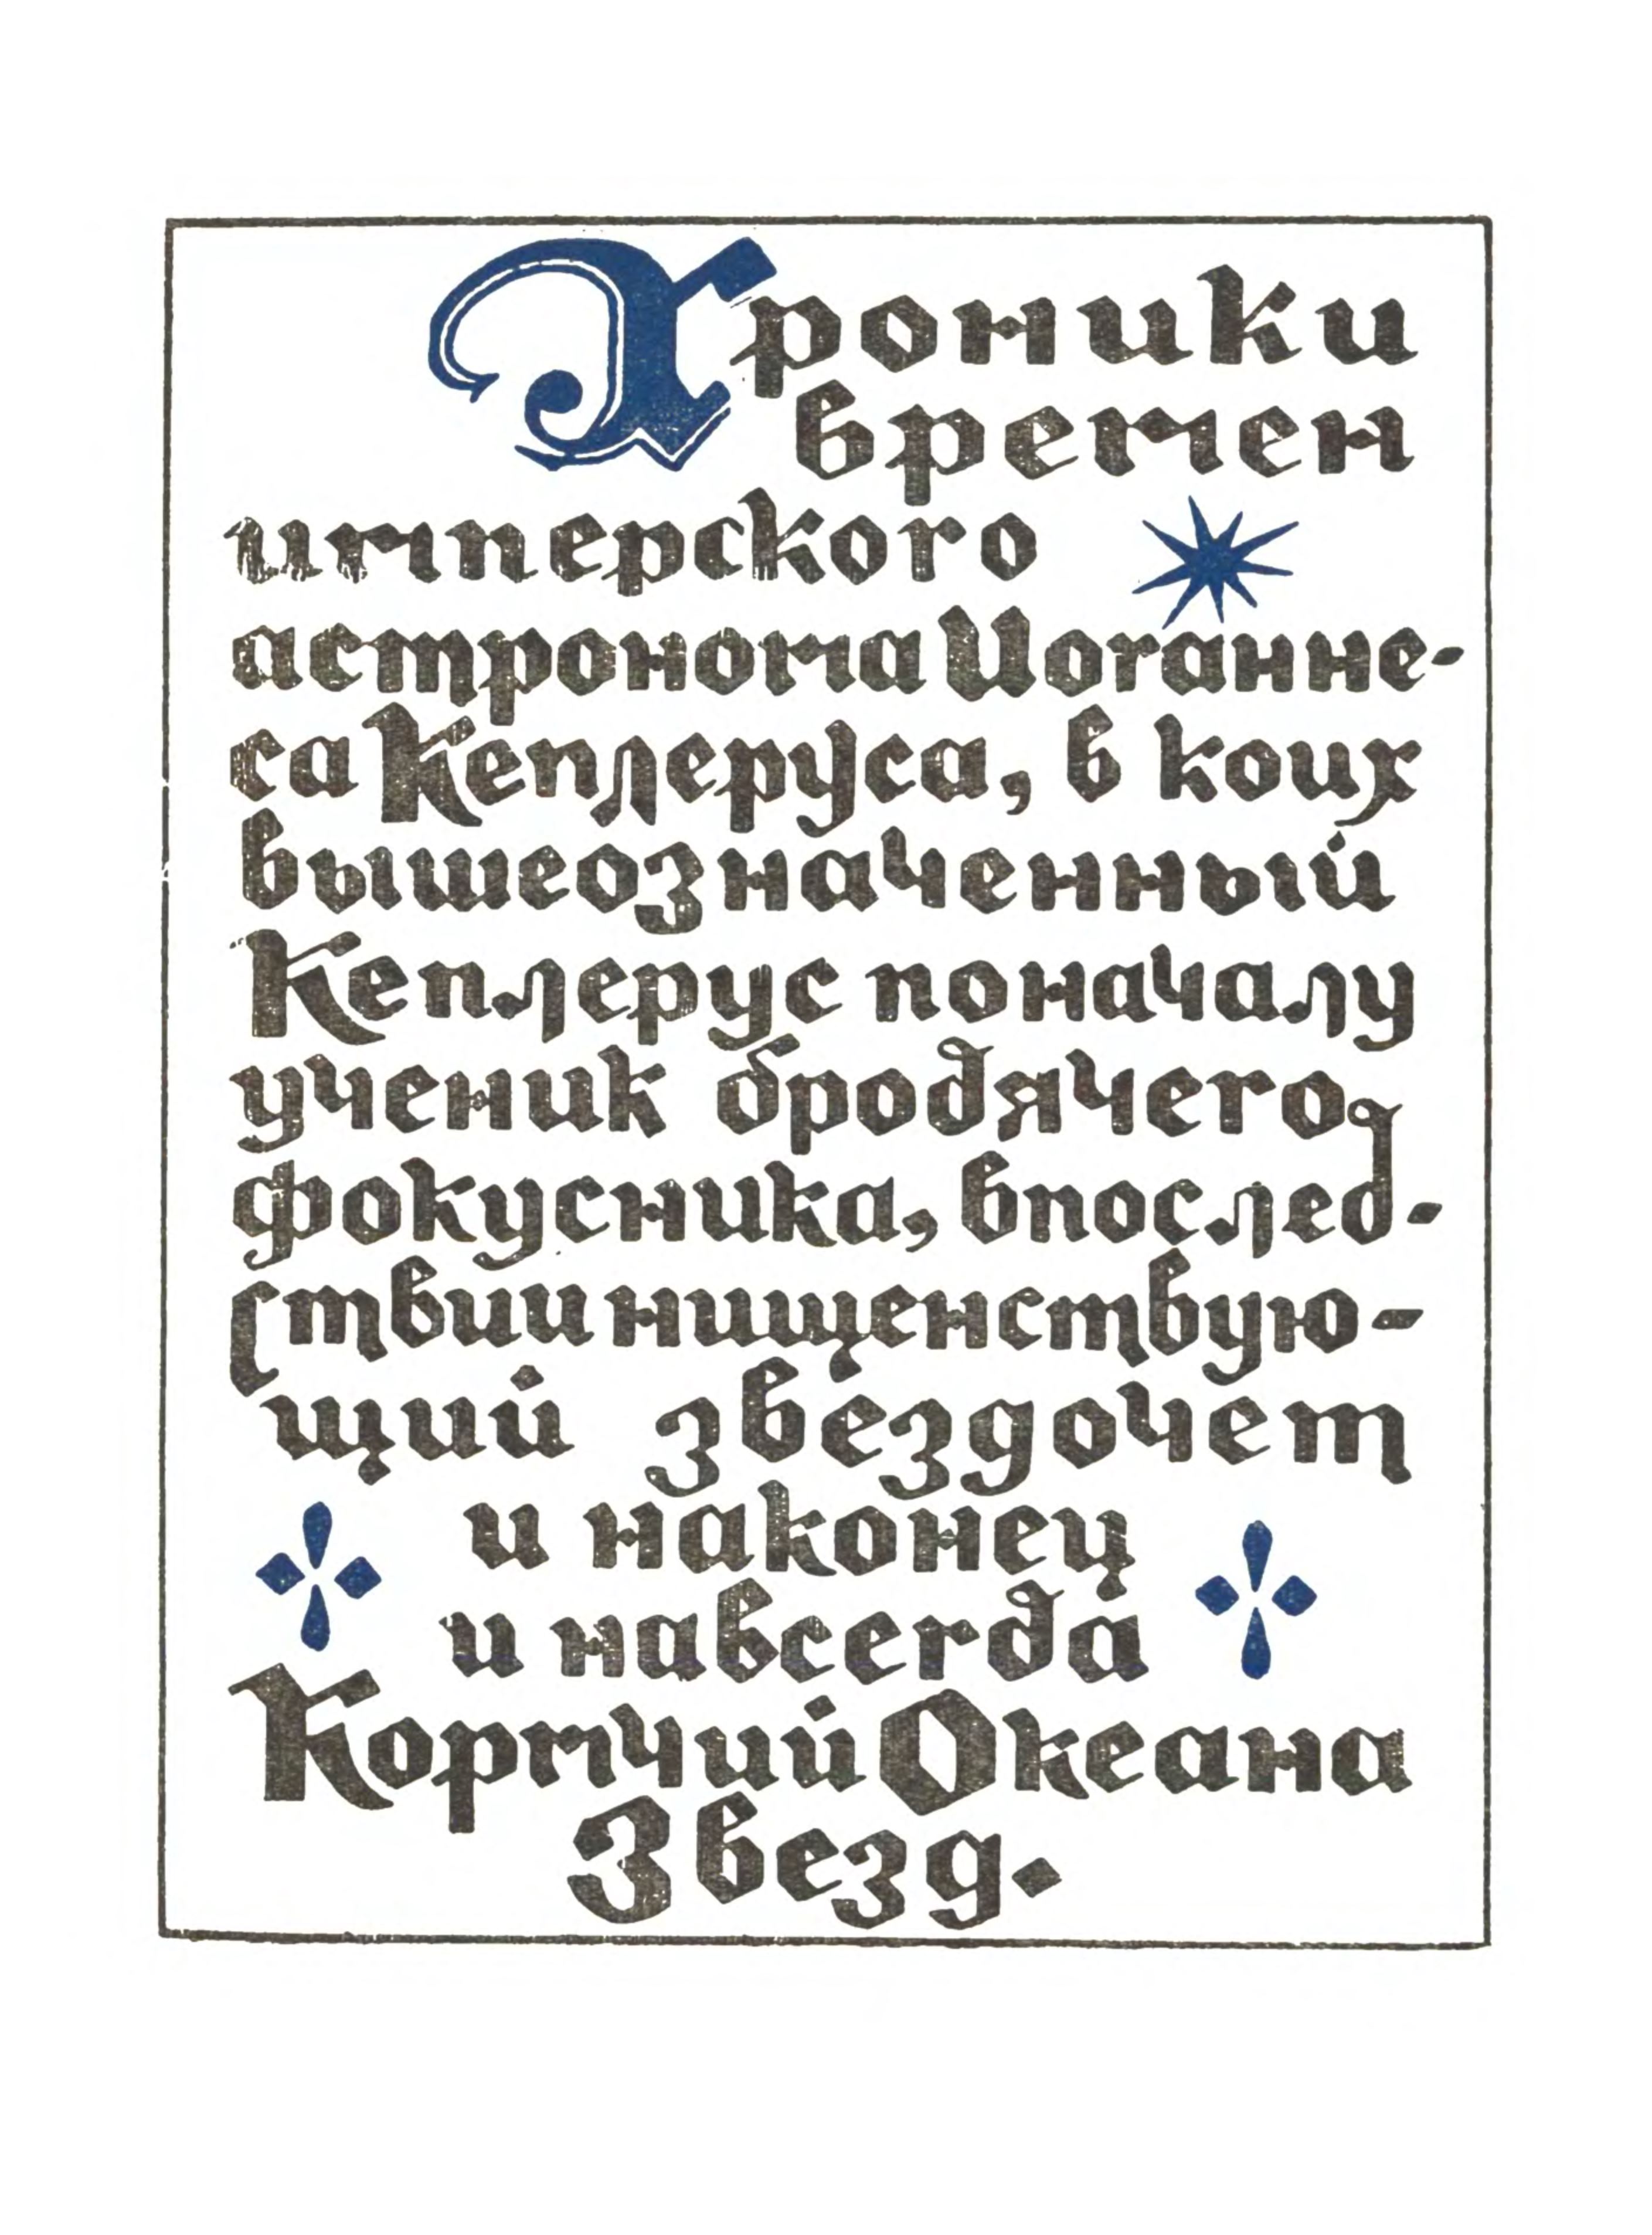 Хроники
времен
имперского
астронома Иоганне-
са Кеплеруса, в коих
вышеозначенный
Кеплерус поначалу
ученик бродячего
фокусника, впослед-
ствии нищенствую-
щий звездочет
и наконец
и навсегда
Кормчий Океана
Звезд.